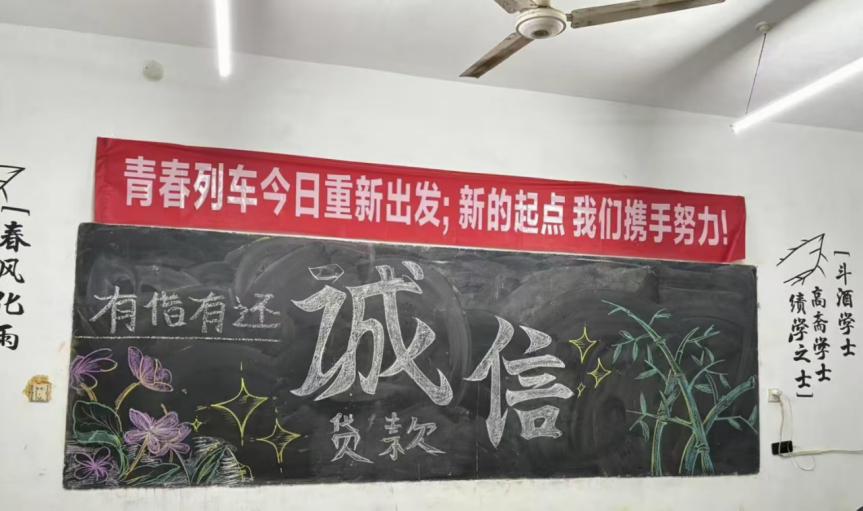 青春列车今日重新出发; 新的起点 我们携手努力!
「春风化雨
有借有还
诚信
贷款
「斗酒学士
高斋学士
绩学之士」